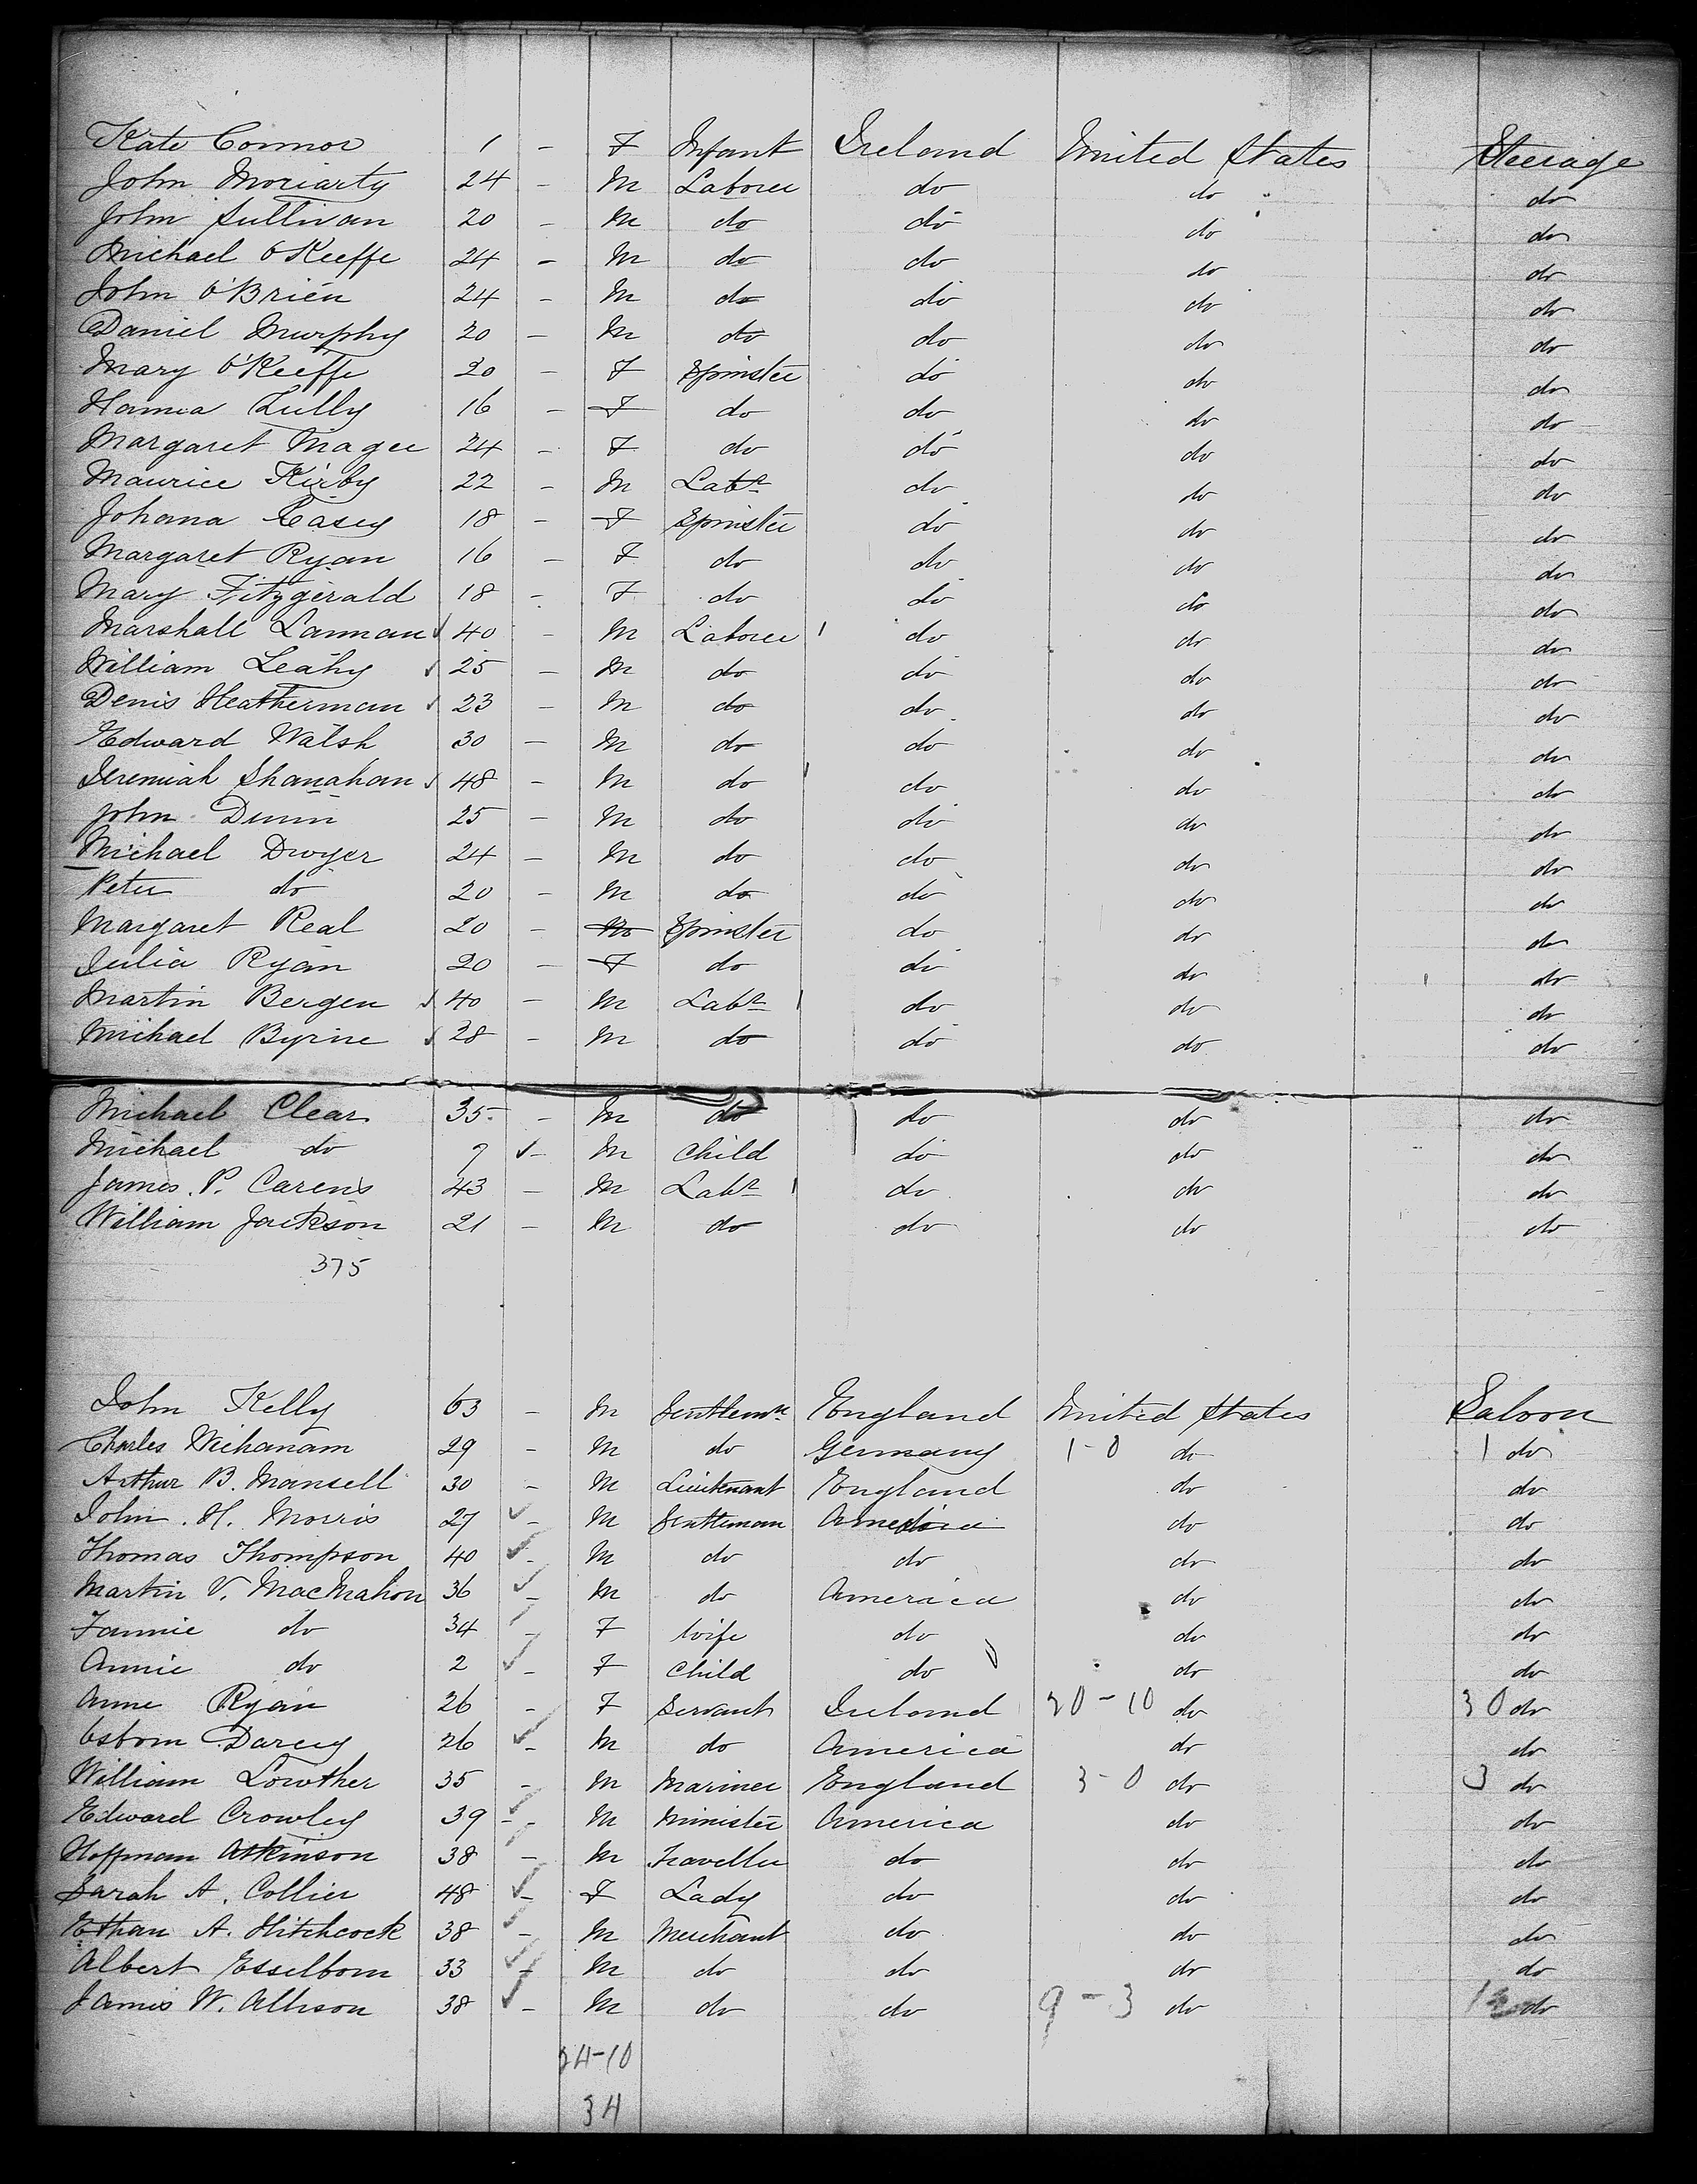 Kate Connor 1 - F Infant Ireland United States Steerage
John Moriarty 24 - M Laborer do do do
John Sullivan 20 - M do do do do
Michael O'Keeffe 24 - M do do do do
John O'Brien 24 - M do do do do
Daniel Murphy 20 - M do do do do
Mary O'Keeffe 20 - F Spinster do do do
Hanna Lully 16 - F do do do do
Margaret Magee 24 - F do do do do
Maurice Kirby 22 - M Labr do do do
Johana Casey 18 - F Spinster do do do
Margaret Ryan 16 - F do do do do
Mary Fitzgerald 18 - F do do do do
Marshall Lannan 40 - M Laborer do do do
William Leahy 25 - M do do do do
Denis Heatherman 23 - M do do do do
Edward Walsh 30 - M do do do do
Jeremiah Shanahan 48 - M do do do do
John Dunn 25 - M do do do do
Michael Dwyer 24 - M do do do do
Peter do 20 - M do do do do
Margaret Real 20 - Spinster do do do
Julia Ryan 20 - F do do do do
Martin Bergen 40 - M Labr do do do
Michael Byrne 28 - M do do do do
Michael Clear 35 - M do do do do
Michael do 9 - M Child do do do
James P. Carens 43 - M Labr do do do
William Jackson 21 - M do do do do
375
John Kelly 63 - M Gentlemn England United States Saloon
Charles Wichanam 29 - M do Germany 1-0 do 1 do
Arthur B. Mansell 30 - M Lieutenant England do do
John H. Morris 27 - M Gentleman America do do
Thomas Thompson 40 - M do do do do
Martin V. MacMahon 36 - M do America do do
Fannie do 34 - F Wife do do do
Annie do 2 - F Child do do do
Anne Ryan 26 - F Servant Ireland 20-10 do 30 do
Osborn Darcey 26 - M do America do do
William Lowther 35 - M Mariner England 3-0 do 3 do
Edward Crowley 39 - M Minister America do do
Hoffman Atkinson 38 - M Traveller do do do
Sarah A. Collier 48 - F Lady do do do
Ethan A. Hitchcock 38 - M Merchant do do do
Albert Esselborn 33 - M do do do do
James W. Allison 38 - M do do 9-3 do 12 do
24-10
34